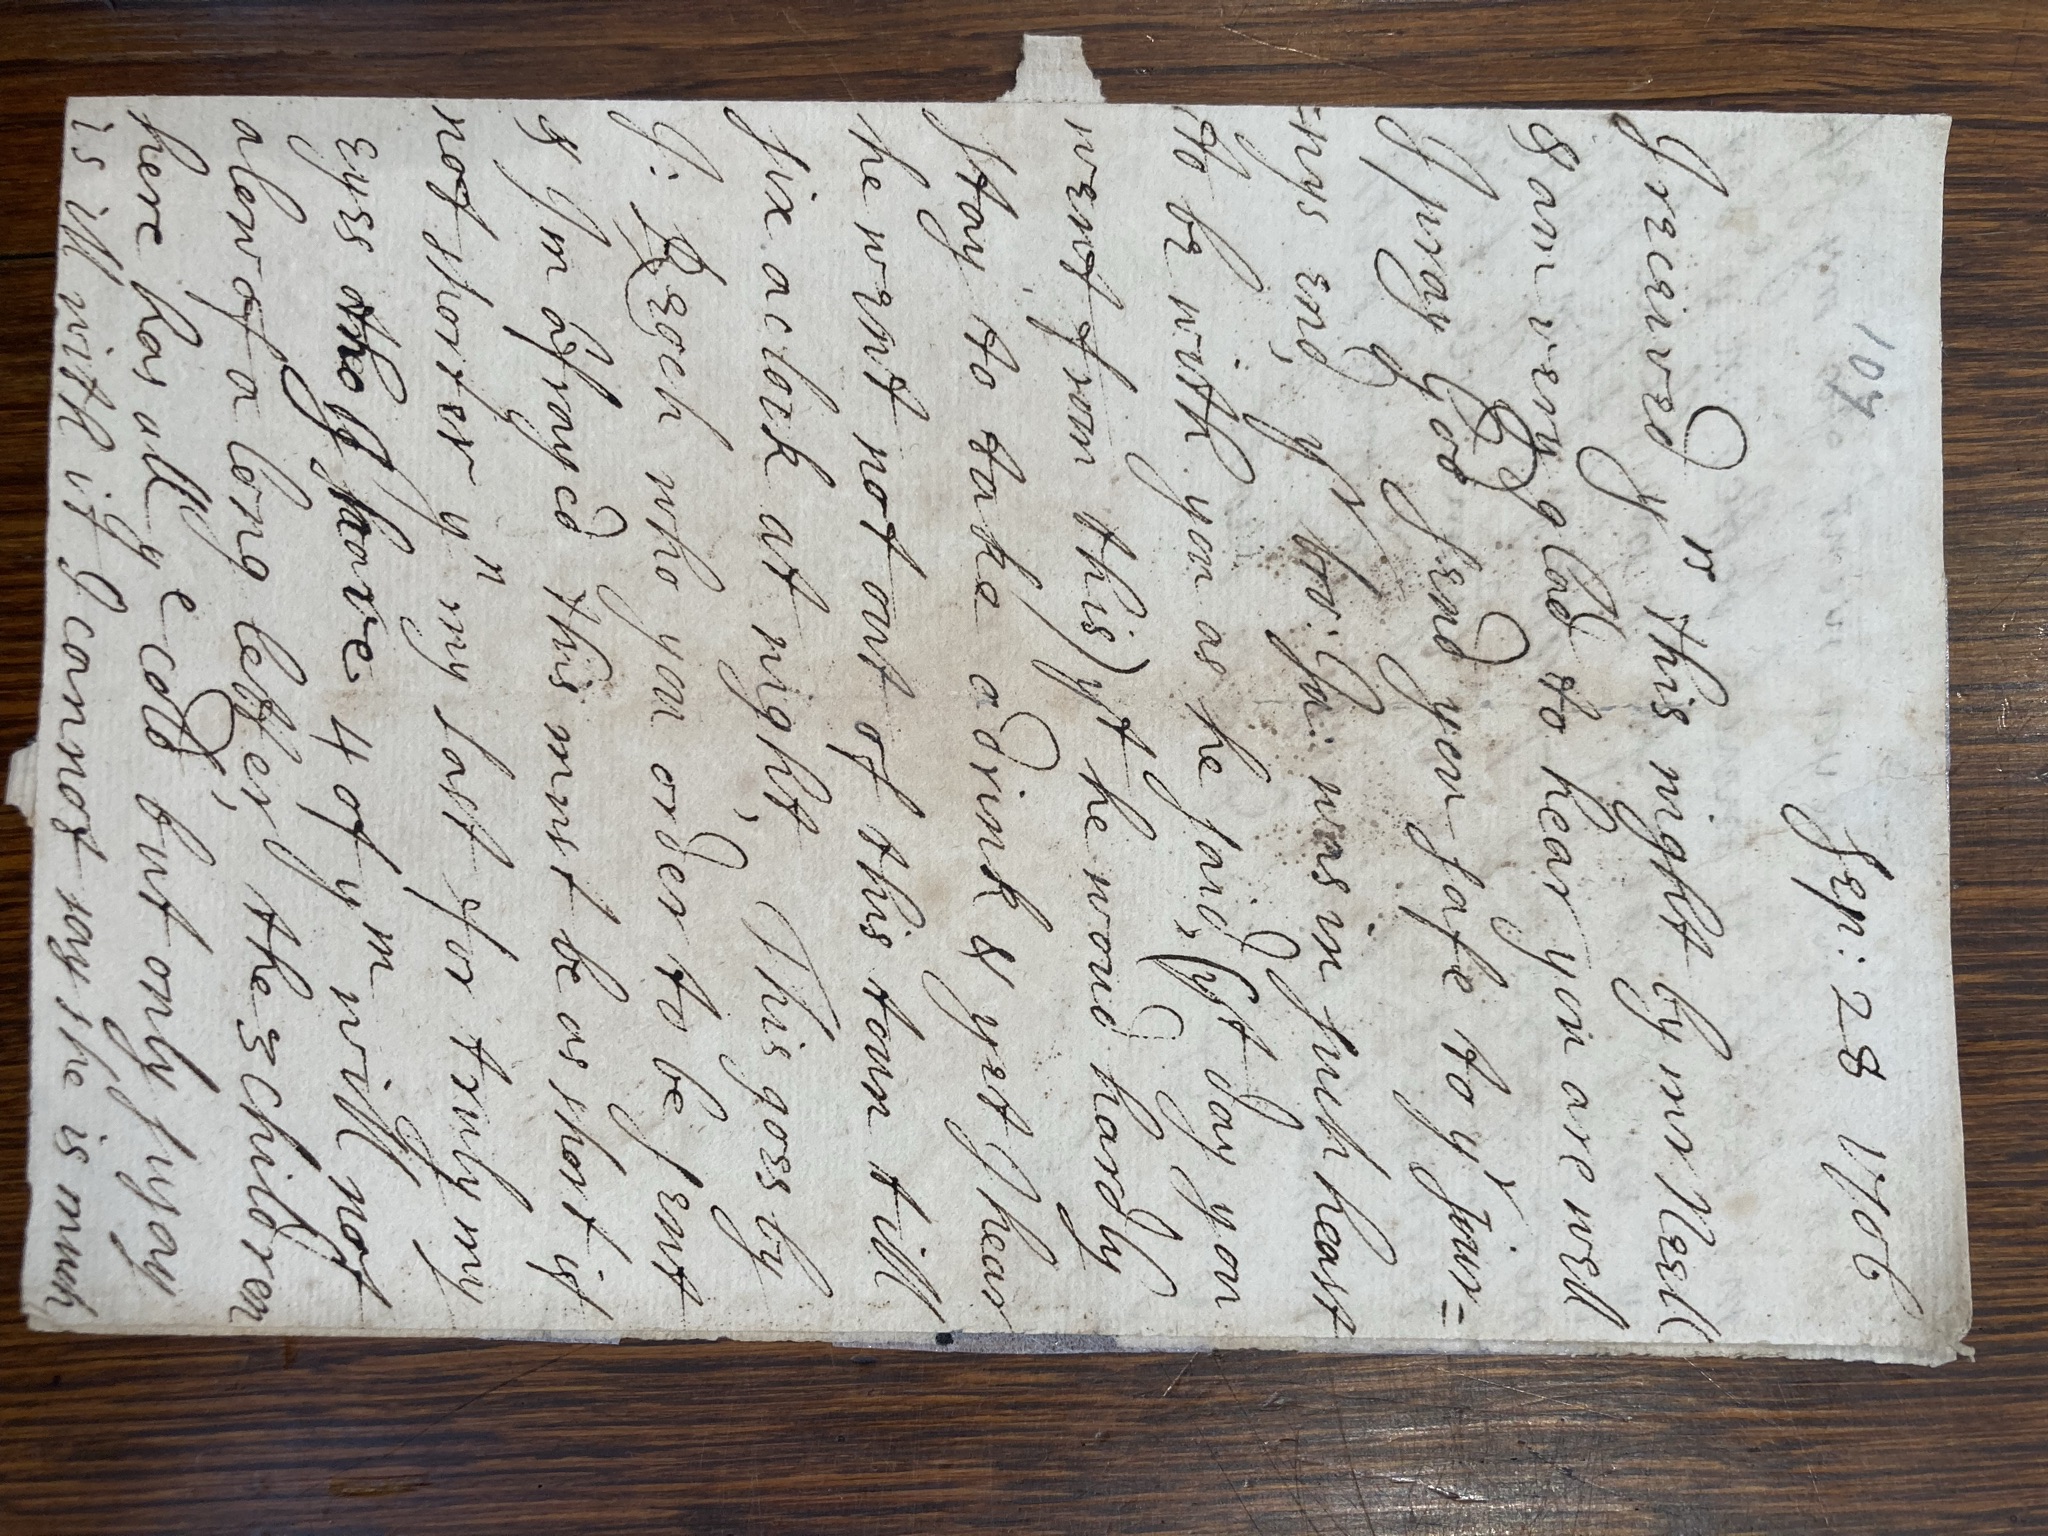 107
Sep: 28 1706
I received yrs this night by mr Neell
& am very glad to hear you are well
I pray God send you safe to yr jour=
=nys end, yr bro: Ja: was in such heast
to be with you as he said, (yt day you
went from this) yt he woud hardly
stay to take a drink & yet I hear
he went not out of this toun till
six aclock at night, This goes by
J: Reoch who you order to be sent
& Im afrayed this must be as short if
not shorter yn my last for truly my
eyes tho I have 4 of ym will not
alow of a long letter, the 3 children
here has all ye cold but only susay
is ill with it I cannot say she is much